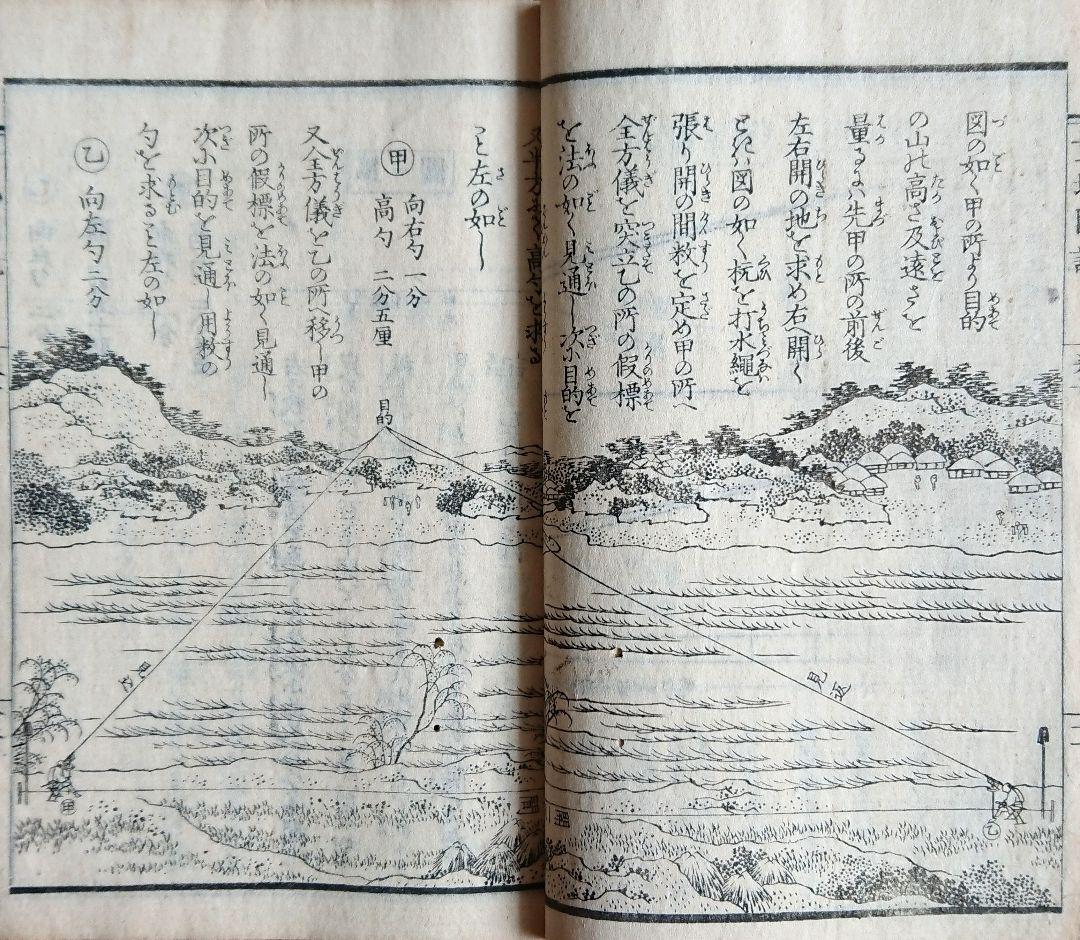 図の如く甲の所より目的
の山の高さ及遠さを
量るには先甲の所の前後
左右開の地を求め右へ開く
とき図の如く杭を打水縄を
張り開の間数を定め甲の所へ
全方儀を突立乙の所の假標
を法の如く見通し次に目的を
高さを求る
こと左の如し
甲 向右勺 一分
高勺 二分五厘
又全方儀を乙の所へ移し甲の
所の假標を法の如く見通し
次に目的を見通し用数の
勺を求ること左の如し
乙 向左勺 二分
目的
見込
見込
甲
乙